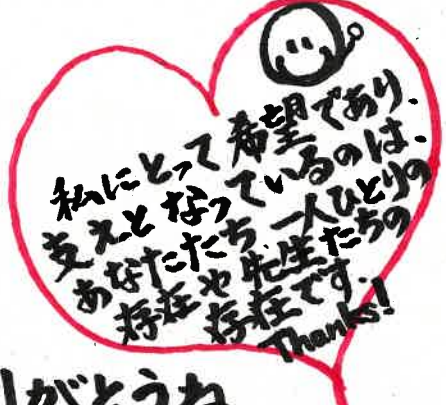 私にとって希望であり、
支えとなっているのは、
あなたたち一人ひとりの
存在や先生たちの
存在です。
Thanks!
りがとうね